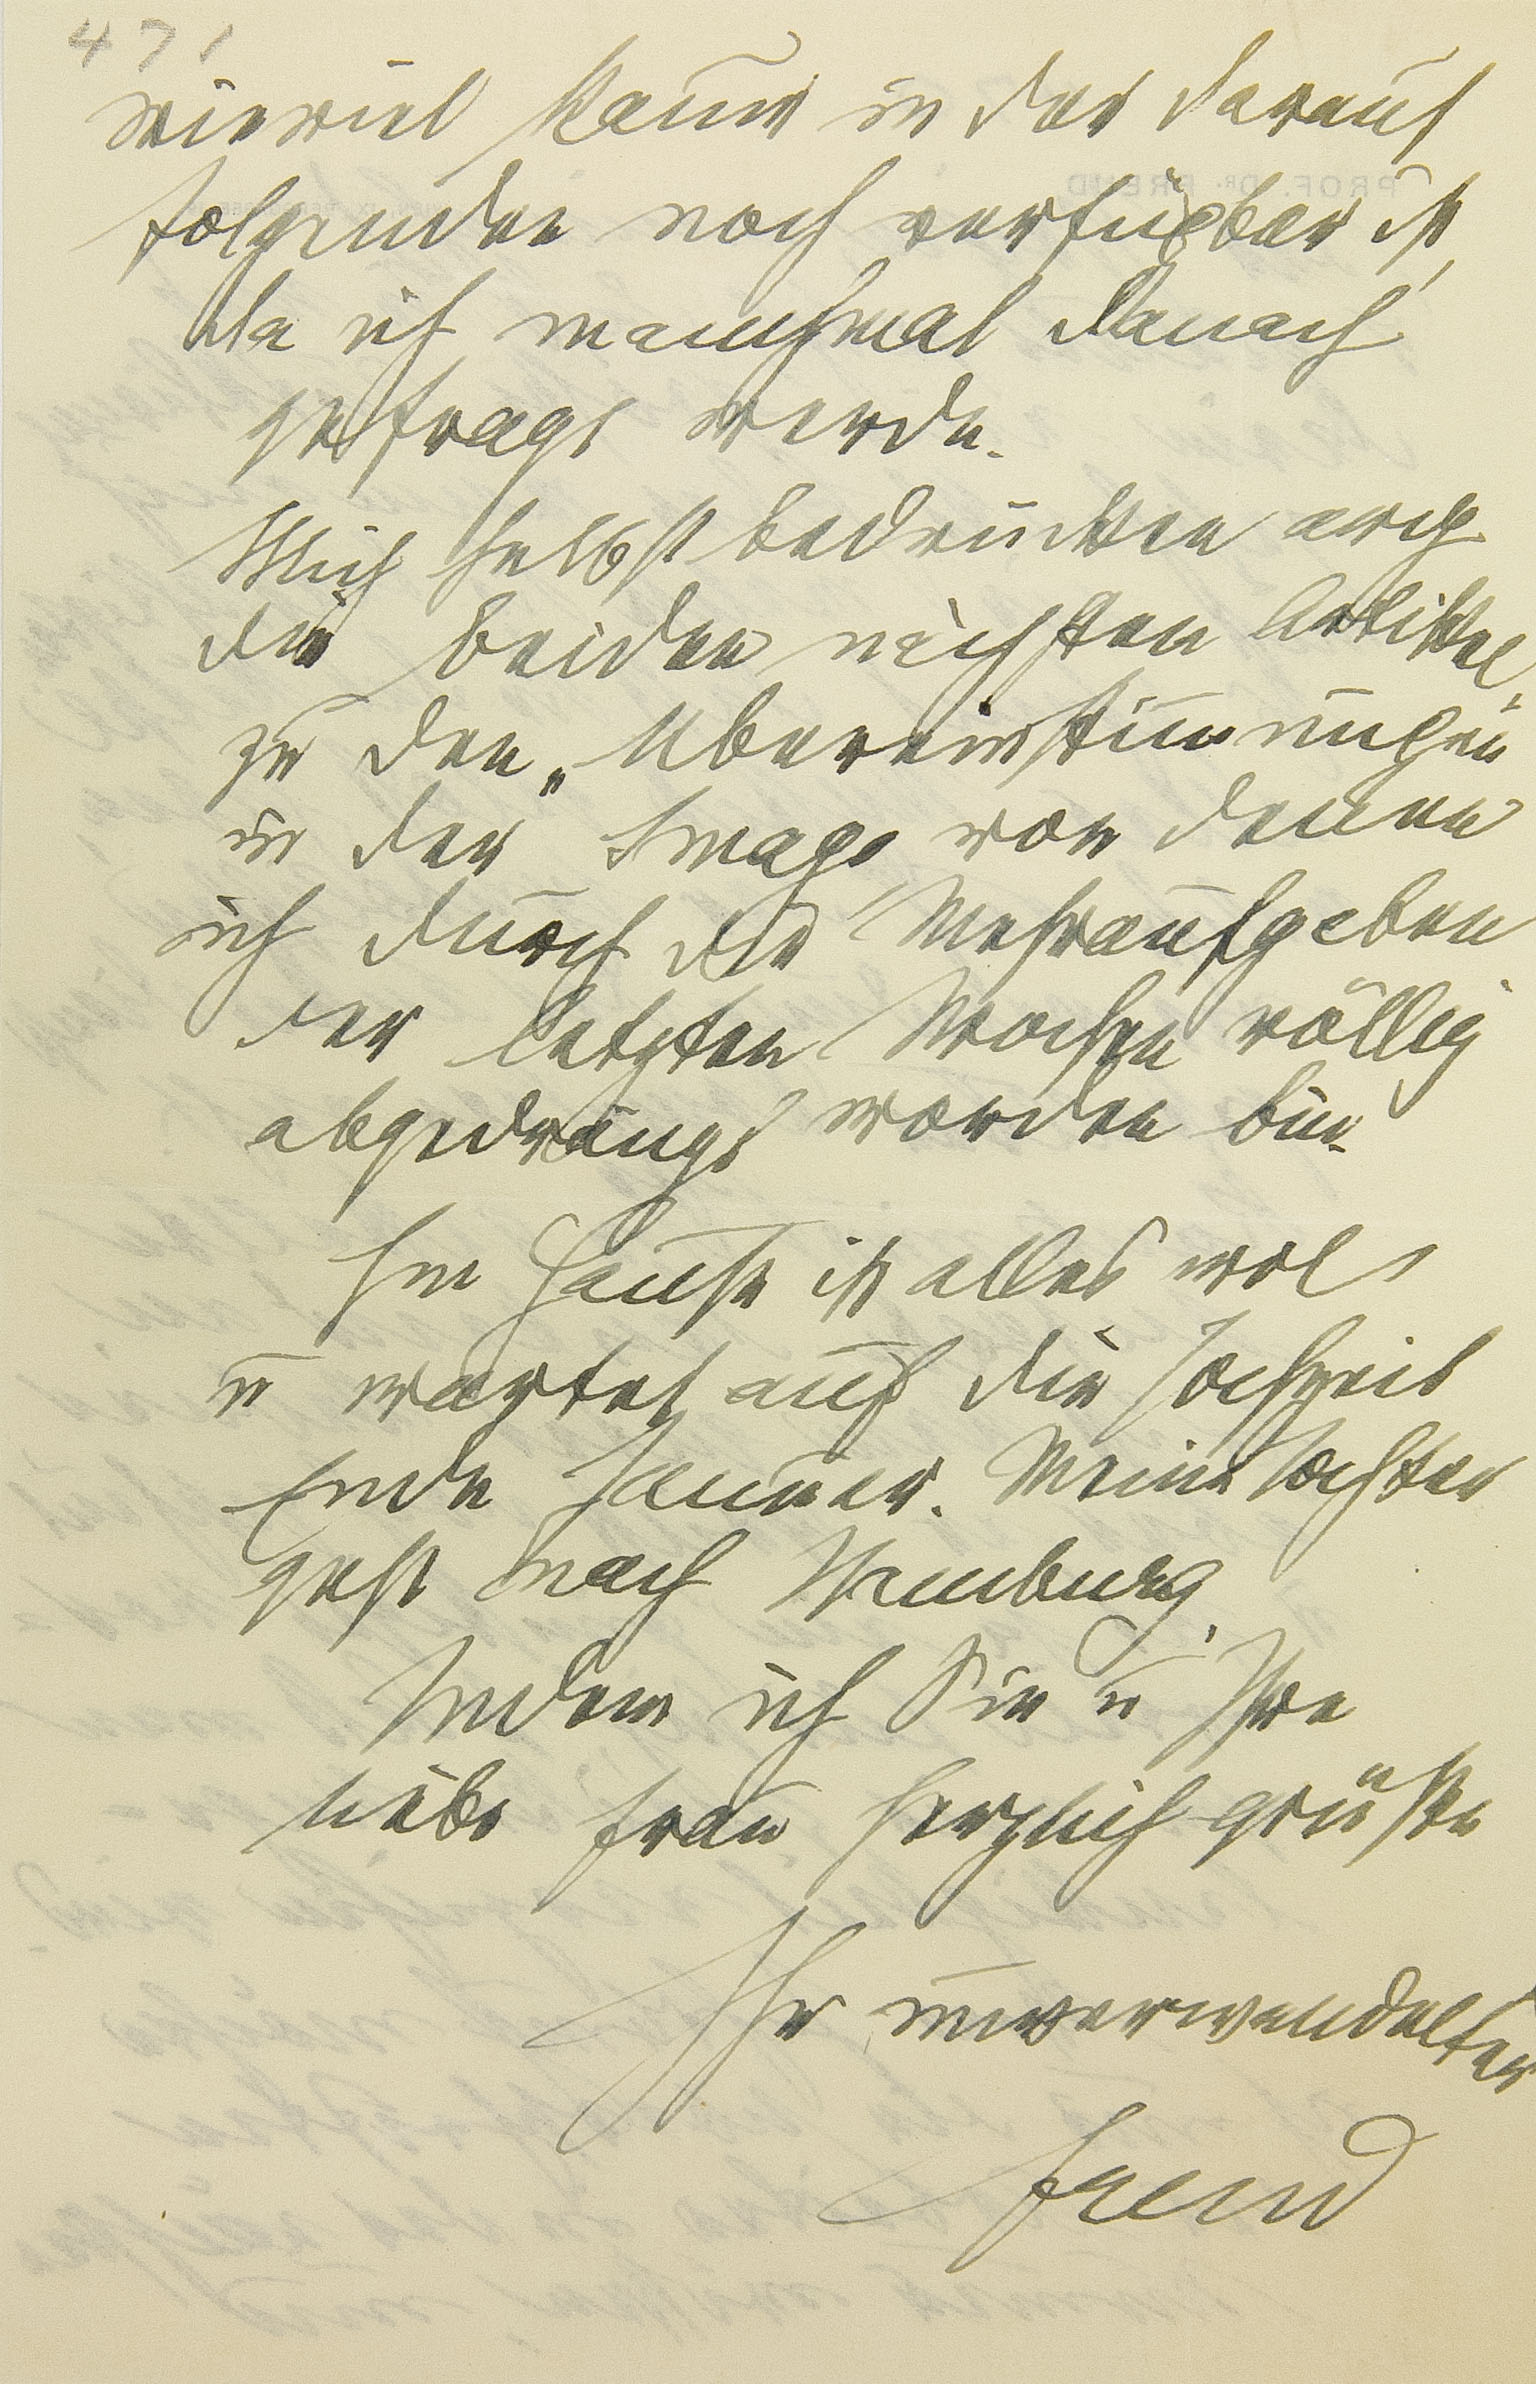 471
wieviel Raum in der darauf
folgenden noch verfügbar ist,
da ich manchmal danach
gefragt werde.
Mich selbst bedrücken arg
die beiden nächsten Artikel
zu den „Übereinstimmungen
in der Imago von denen
ich durch die Mehraufgaben
der letzten Wochen völlig
abgedrängt worden bin.
Im Hause ist alles wol
u wartet auf die Hochzeit
Ende Januar. Meine Tochter
geht nach Hamburg.
Indem ich Sie u Ihre
liebe Frau herzlich grüße
Ihr unverwandelter
Freud
PROF. DR. FREUD